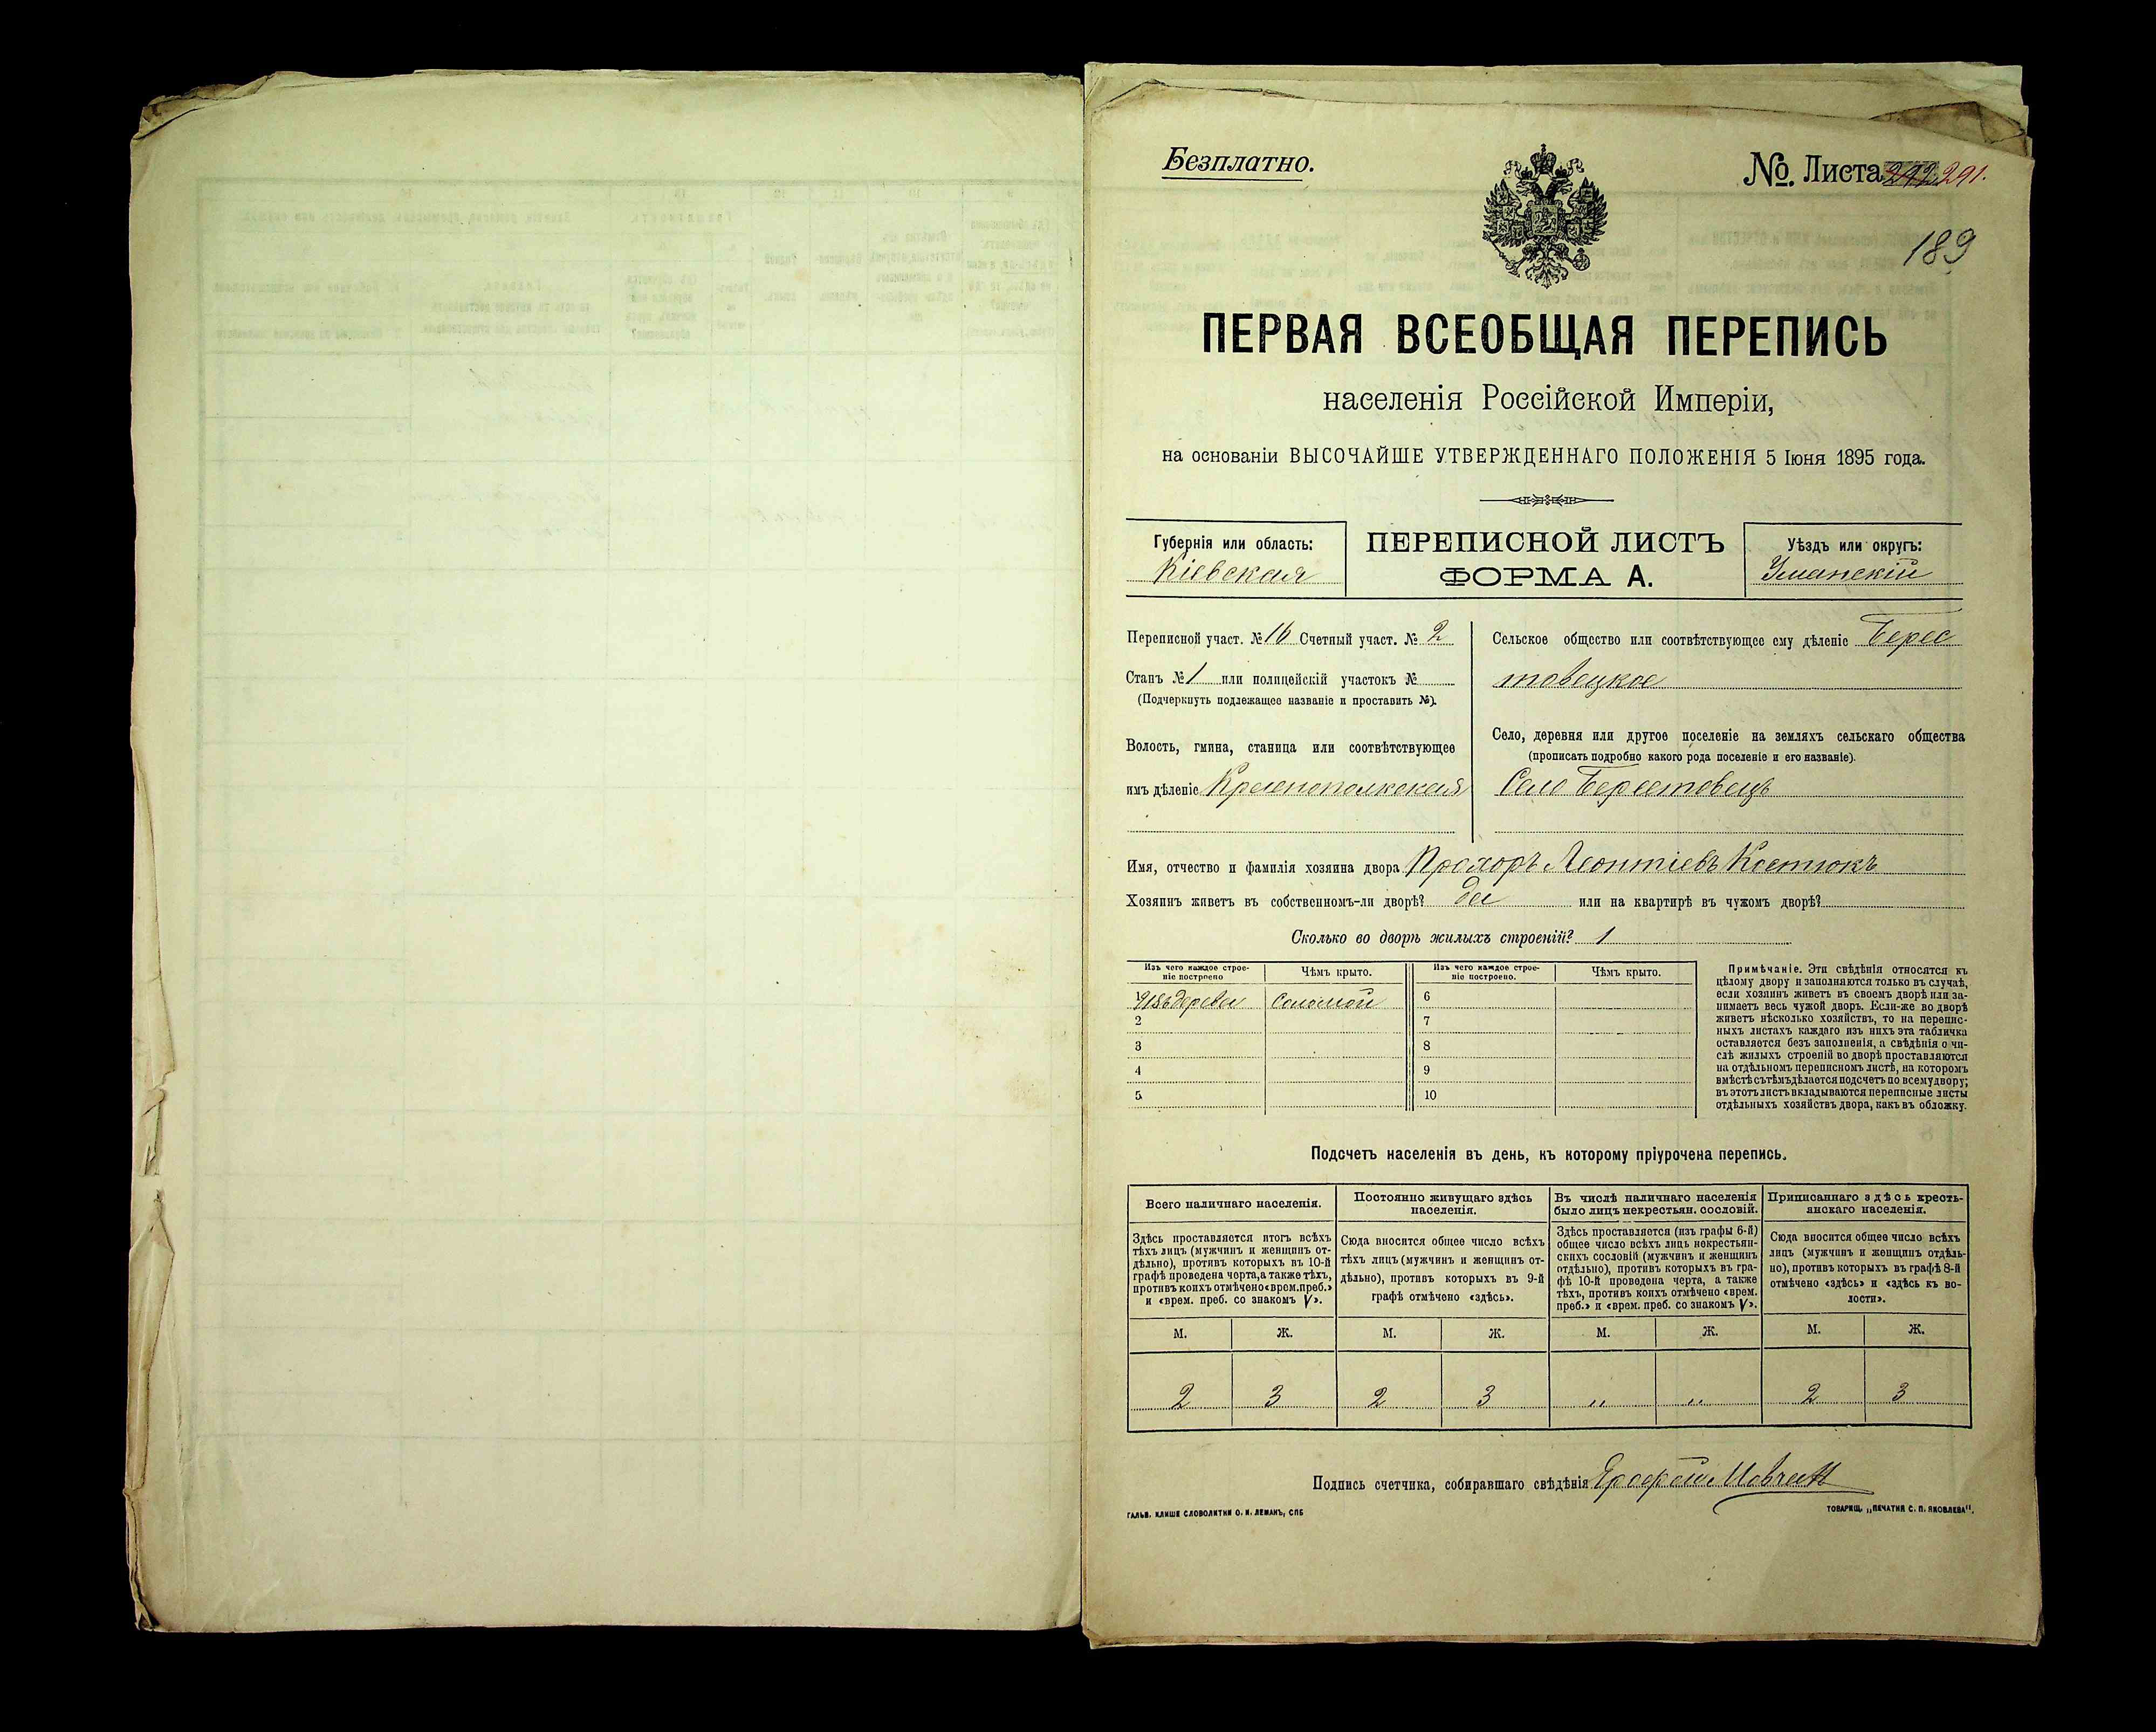 Безплатно.
№. Листа 292 291.
189
ПЕРВАЯ ВСЕОБЩАЯ ПЕРЕПИСЬ
населенія Россійской Имперіи,
на основаніи ВЫСОЧАЙШЕ УТВЕРЖДЕННАГО ПОЛОЖЕНІЯ 5 Іюня 1895 года.
Губернія или область:
Кіевская
ПЕРЕПИСНОЙ ЛИСТЪ
ФОРМА А.
Уѣздъ или округъ:
Уманскій
Переписной участ. № 16 Счетный участ. № 2
Станъ № 1 или полицейскій участокъ №
(Подчеркнуть подлежащее названіе и проставить №).
Волость, гмина, станица или соотвѣтствующее
имъ дѣленіе Краснопольская
Сельское общество или соотвѣтствующее ему дѣленіе Берес
товецкое
Село, деревня или другое поселеніе на земляхъ сельскаго общества
(прописать подробно какого рода поселеніе и его названіе).
Село Берестовецъ
Имя, отчество и фамилія хозяина двора Прохоръ Леонтіевъ Костюкъ
Хозяинъ живетъ въ собственномъ-ли дворѣ? да или на квартирѣ въ чужомъ дворѣ?
Сколько во дворѣ жилыхъ строеній? 1
Изъ чего каждое строе-
ніе построено
Чѣмъ крыто.
Изъ чего каждое строе-
ніе построено.
Чѣмъ крыто.
1 Изъ дерева Соломой 6
2 7
3 8
4 9
5 10
Примѣчаніе. Эти свѣдѣнія относятся къ
цѣлому двору и заполняются только въ случаѣ,
если хозяинъ живетъ въ своемъ дворѣ или за-
нимаетъ весь чужой дворъ. Если-же во дворѣ
живетъ нѣсколько хозяйствъ, то на перепис-
ныхъ листахъ каждаго изъ нихъ эта табличка
оставляется безъ заполненія, а свѣдѣнія о чи-
слѣ жилыхъ строеній во дворѣ проставляются
на отдѣльномъ переписномъ листѣ, на которомъ
вмѣстѣ съ тѣмъ дѣлается подсчетъ по всему двору;
въ этотъ листъ вкладываются переписные листы
отдѣльныхъ хозяйствъ двора, какъ въ обложку.
Подсчетъ населенія въ день, къ которому пріурочена перепись.
Всего наличнаго населенія.
Здѣсь проставляется итогъ всѣхъ
тѣхъ лицъ (мужчинъ и женщинъ от-
дѣльно), противъ которыхъ въ 10-й
графѣ проведена черта, а также тѣхъ,
противъ коихъ отмѣчено «врем. преб.»
и «врем. преб. со знакомъ V».
Постоянно живущаго здѣсь
населенія.
Сюда вносится общее число всѣхъ
тѣхъ лицъ (мужчинъ и женщинъ от-
дѣльно), противъ которыхъ въ 9-й
графѣ отмѣчено «здѣсь».
Въ числѣ наличнаго населенія
было лицъ некрестьян. сословій.
Здѣсь проставляется (изъ графы 6-й)
общее число всѣхъ лицъ некрестьян-
скихъ сословій (мужчинъ и женщинъ
отдѣльно), противъ которыхъ въ гра-
фѣ 10-й проведена черта, а также
тѣхъ, противъ коихъ отмѣчено «врем.
преб.» и «врем. преб. со знакомъ V».
Приписаннаго здѣсь кресть-
янскаго населенія.
Сюда вносится общее число всѣхъ
лицъ (мужчинъ и женщинъ отдѣль-
но), противъ которыхъ въ графѣ 8-й
отмѣчено «здѣсь» и «здѣсь къ во-
лости».
М. Ж. М. Ж. М. Ж. М. Ж.
2 3 2 3 " " 2 3
Подпись счетчика, собиравшаго свѣдѣнія Ерофей Мовчан
ГАЛЬВ. КЛИШЕ СЛОВОЛИТНИ О. И. ЛЕМАНЪ, СПБ
ТОВАРИЩ. „ПЕЧАТНЯ С. П. ЯКОВЛЕВА".